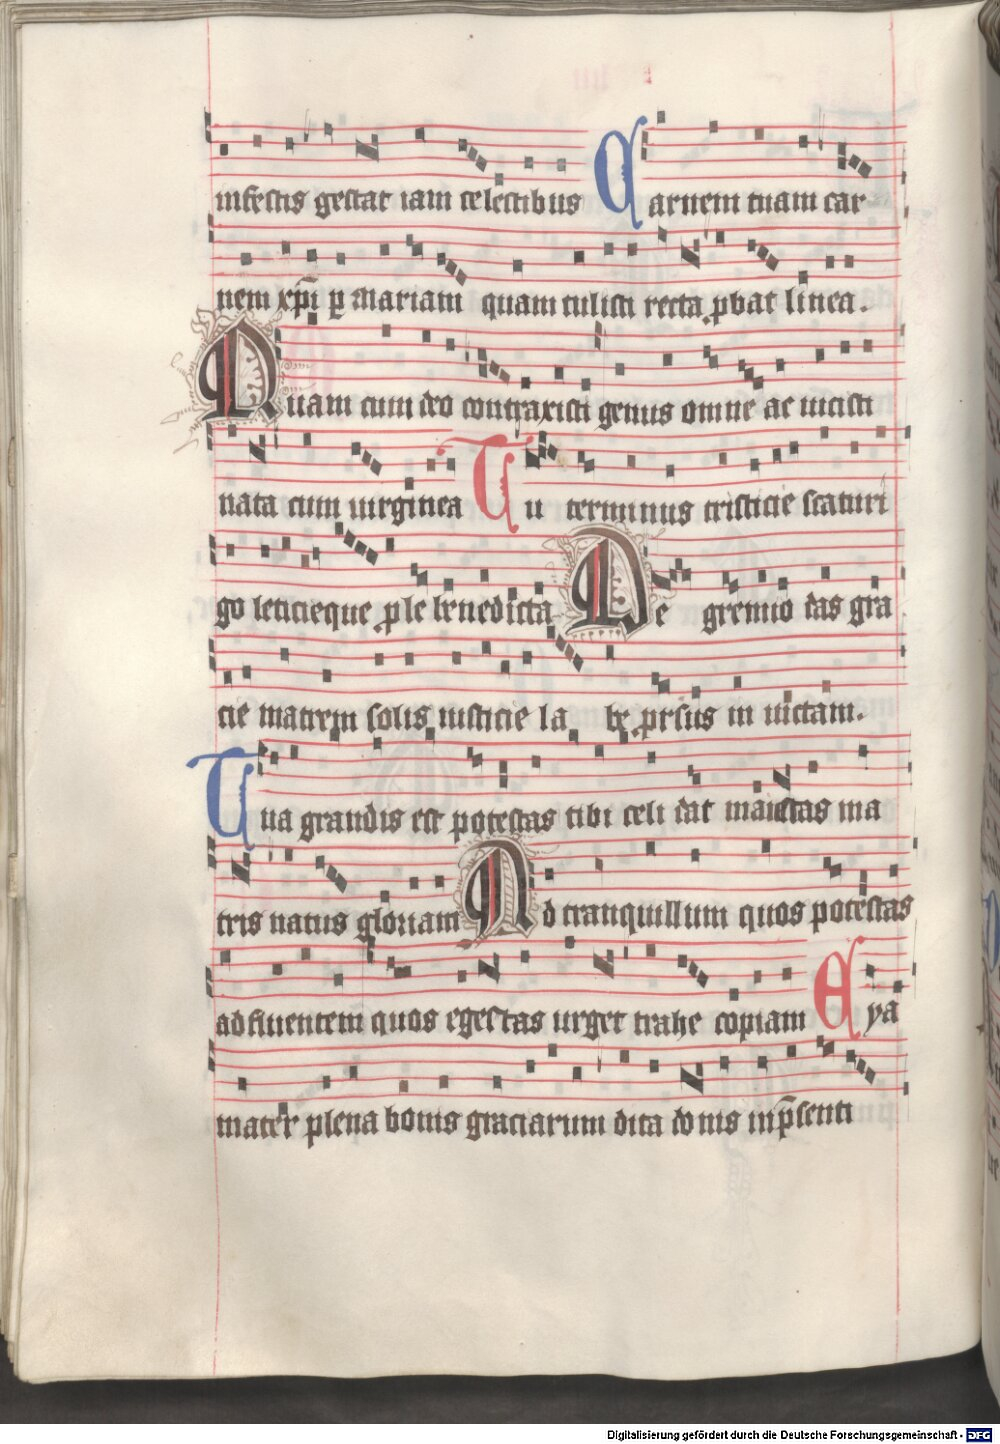 infestis gestat iam celestibus Carnem tuam car
nem xp̄i p mariam quam tulisti recta pbat linea.
Quam cum deo contraxisti genus omne ac iucisti
nata cum uirginea Tu terminus tristicie scaturi
go leticieque ple benedicta De gremio das gra
cie matrem solis iusticie la be prsus in uictam.
Tua grandis est potestas tibi celi dat maiestas ma
tris natus gloriam Ad tranquillum quos potestas
adfluentem quos egestas urget trahe copiam Eya
mater plena bonis graciarum dita donis in p̄senti
Digitalisierung gefördert durch die Deutsche Forschungsgemeinschaft - DFG